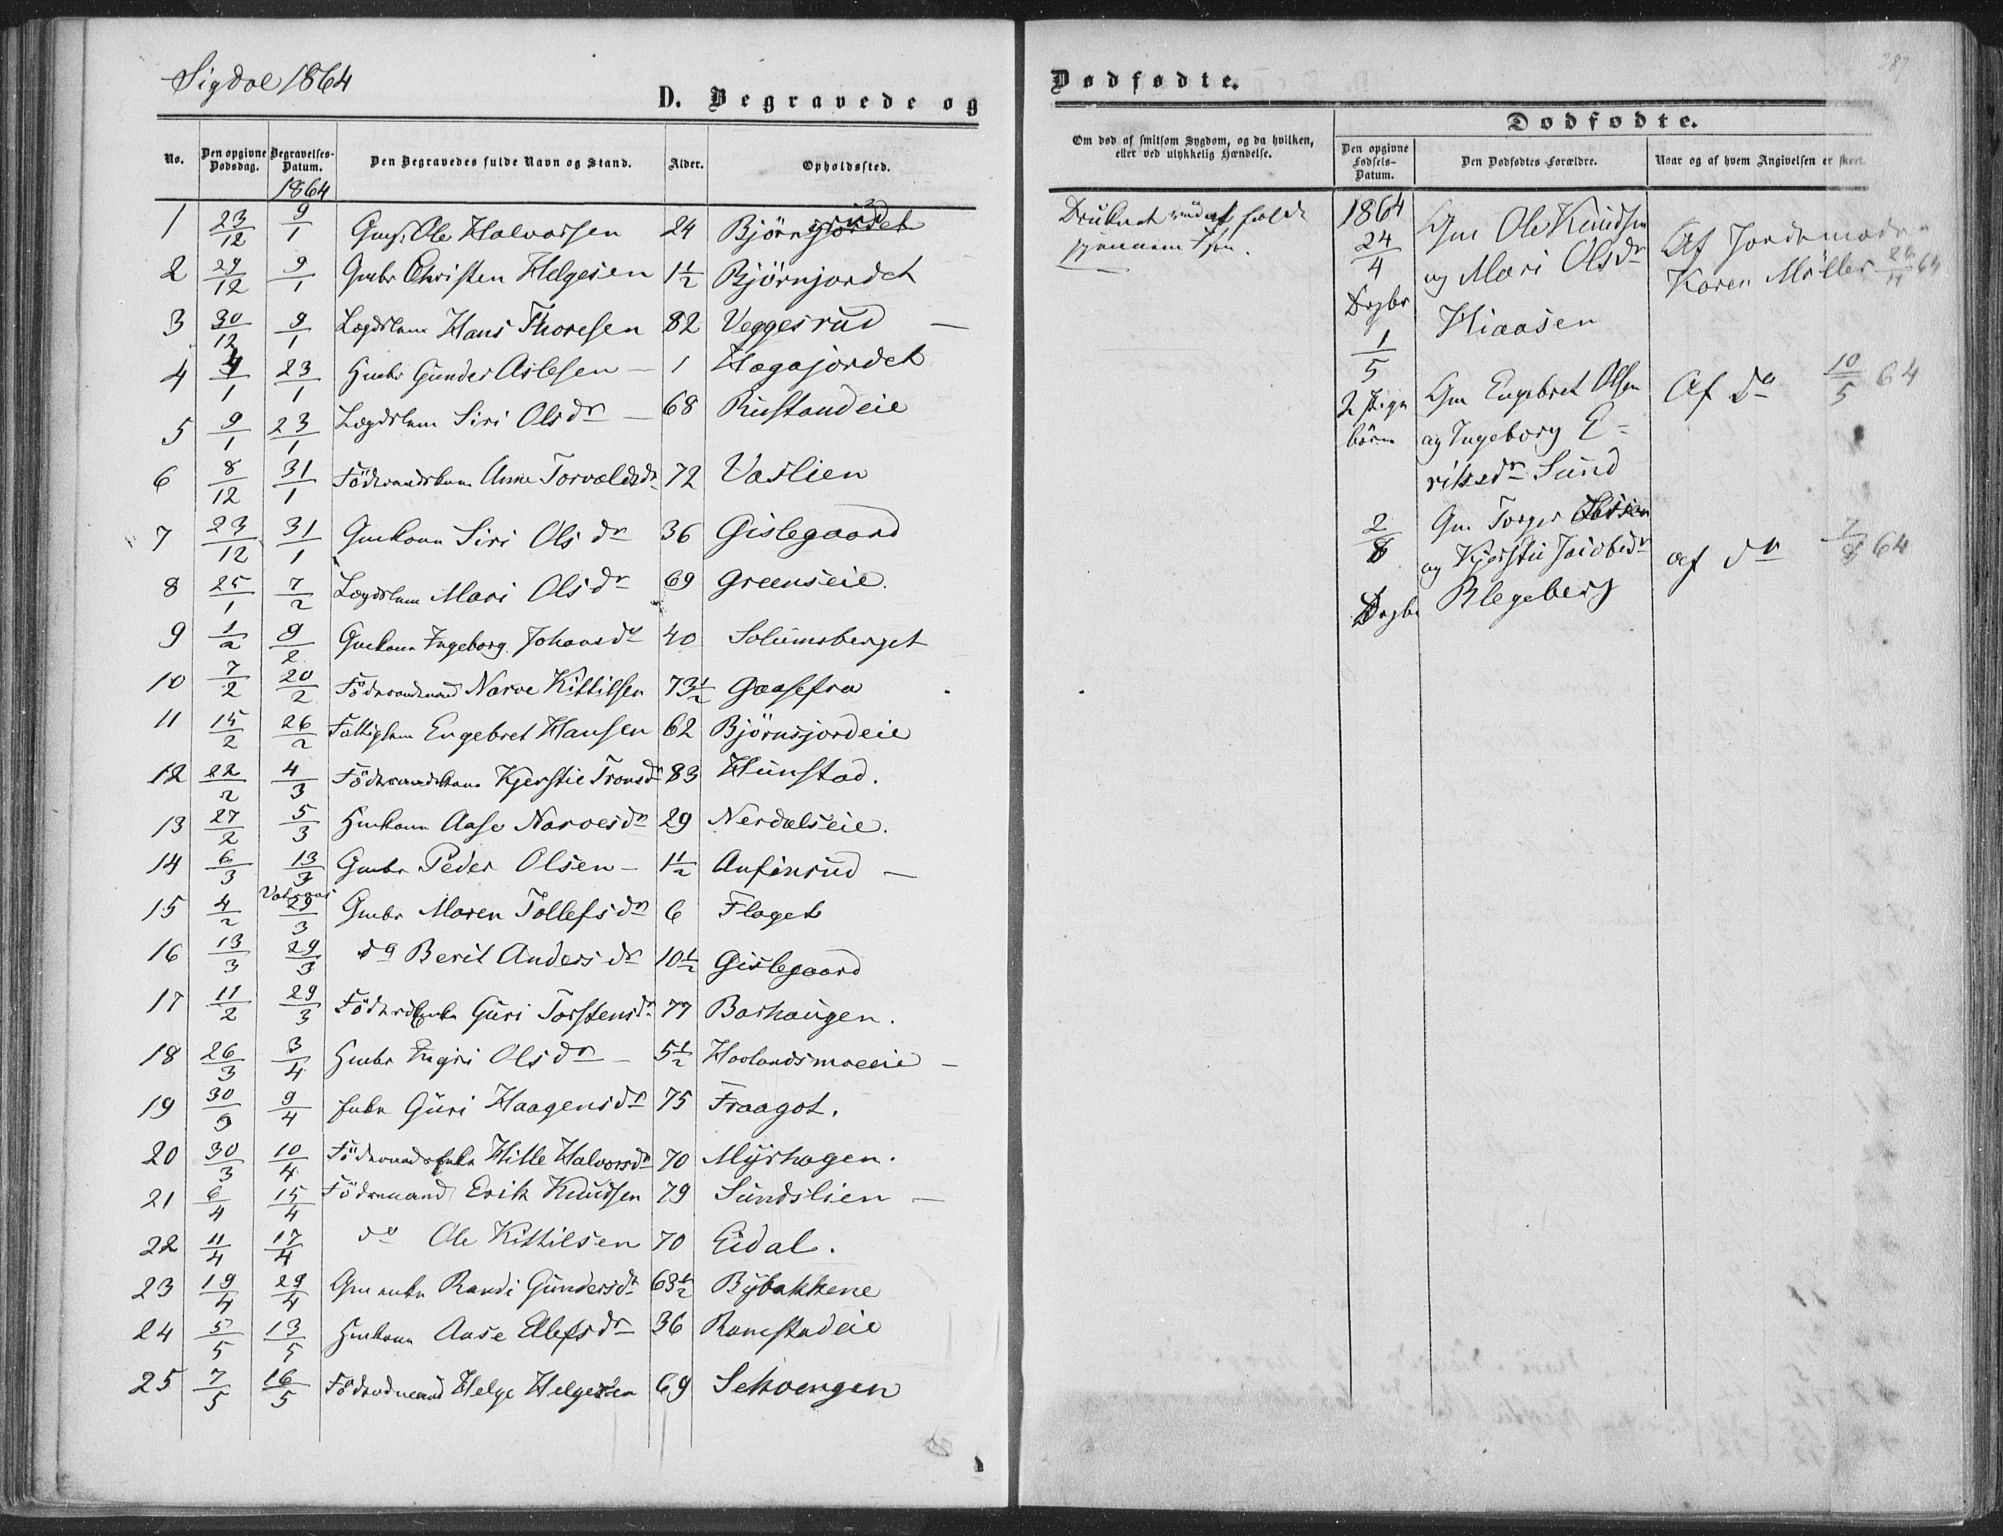 Sigdal 1864
D. Begravede og
No. Den opgivne Dødsdag. Begravelses-Datum. Den Begravedes fulde Navn og Stand. Alder. Opholdssted.
1864
1 23/12 9/1 Ole Halvorsen 24
2 29/12 9/1 Gmbr Christen Helgesen 1 1/2 Bjørnjordet
3 30/12 9/1 Lægdslem Hans Thoresen 82 Veggesrud —
4 4/1 23/1 Hmbr Gunder Aslesen — 1 Hagajordet
5 9/1 23/1 Lægdslem Siri Olsdr — 68 Rustandeie
6 8/12 31/1 Anne Torvaldsdr 72 Vaslien
7 23/12 31/1 Gmkone Siri Olsdr 36 Gislegaard
8 25/1 7/2 Lægdslem Mari Olsdr 69 Greenseie.
9 1/2 9/2 Gmkone Ingeborg Johansdr 40 Solumsberget
10 7/2 20/2 Föderaadsmand Narve Kittilsen 73 1/2 Gaasefra
11 15/2 26/2 Fattiglem Engebret Hansen 62 Bjørnsjordeie
12 22/2 4/3 Föderaadskone Kjerstie Tronsdr 83 Hunstad.
13 27/2 5/3 Hmkone Aase Narvesdr 29 Nerdalseie.
14 6/3 13/3 Gmbr Peder Olsen — 1 1/2 Anfinrud —
15 4/2 29/3 Gmbr Maren Tollefsdr 6 Flaget
16 13/3 29/3 do Berit Andersdr 10 1/2 Gislegaard
17 11/2 29/3 Guri Torstensdr 77 Barhaugen.
18 26/3 3/4 Hmbr Ingri Olsdr — 5 1/2 Haalandsmoeie —
19 30/3 9/4 Enke Guri Haagensdr 75 Fraagot.
20 30/3 10/4 Föderaadsenke Hille Halvorsdr 70 Myrhagen.
21 6/4 15/4 Föderaamand Erik Knudsen 79 Sundslien —
22 11/4 17/4 do Ole Kittilsen 70 Eidal.
23 19/4 29/4 Gmenke Randi Gundersdr 63 1/2 Bybakkene
24 5/5 13/5 Hmkone Aase Ellefsdr 36 Ramstadeie
25 7/5 16/5 Helge Helgesen 69
Dødfødte.
Om død af smitsom Sygdom, og da hvilken,
eller ved ulykkelig Hændelse.
Druknet ved at falde
gjennem Isen.
Dødfødte.
Den opgivne Fødsels-Datum. Den Dødfødtes Forældre. Naar og af hvem Angivelsen er skeet.
1864
24/4 Gm Ole Knudsen
og Mari Olsdr
Af Jordemoder
Karen Møller
Drgbr Hiaasen
1/5 Gm Engebret Olsen Af do 10/5 64
2 Pige
børn og Ingeborg E-
riksdr Sund
2/8 Gm Torger
og Kjersti Jacobsdr af do 7/8 64
Drgbr Blegeberg